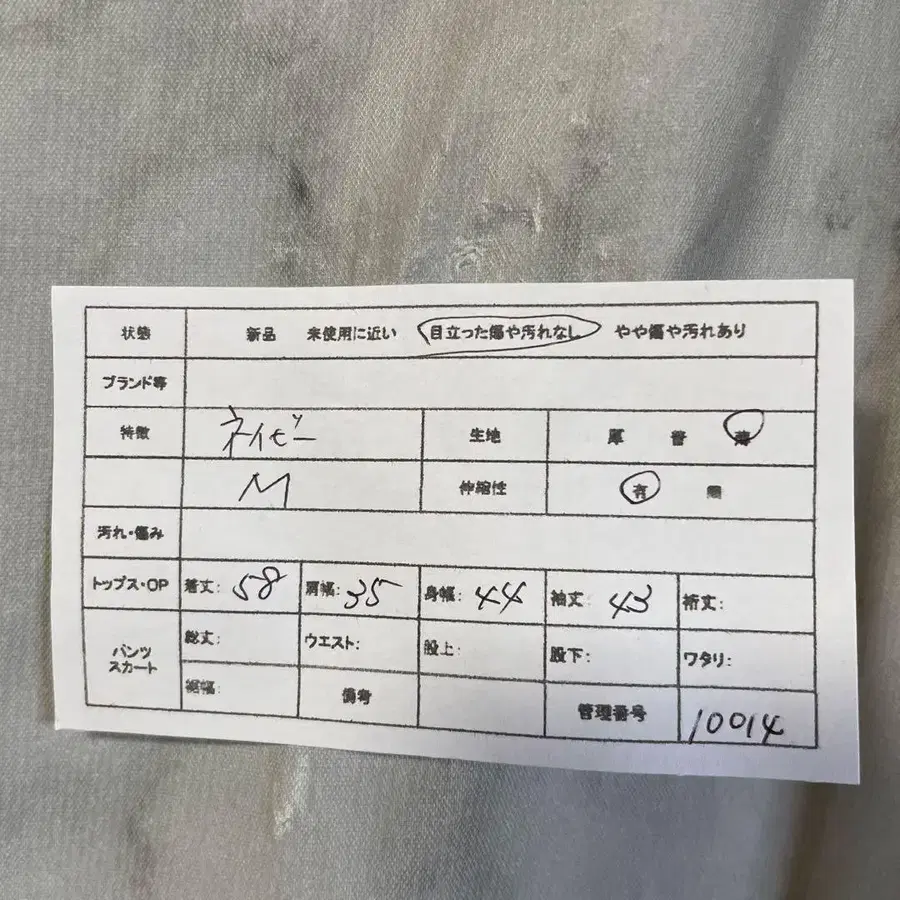 状態 新品 未使用に近い 目立った傷や汚れなし やや傷や汚れあり
ブランド等
特徴 ネイビー 生地 厚 普 薄
M 伸縮性 有 無
汚れ・傷み
トップス・OP 着丈: 58 肩幅: 35 身幅: 44 袖丈: 43 裄丈:
パンツ スカート 総丈: ウエスト: 股上: 股下: ワタリ:
裾幅: 備考 管理番号 10014